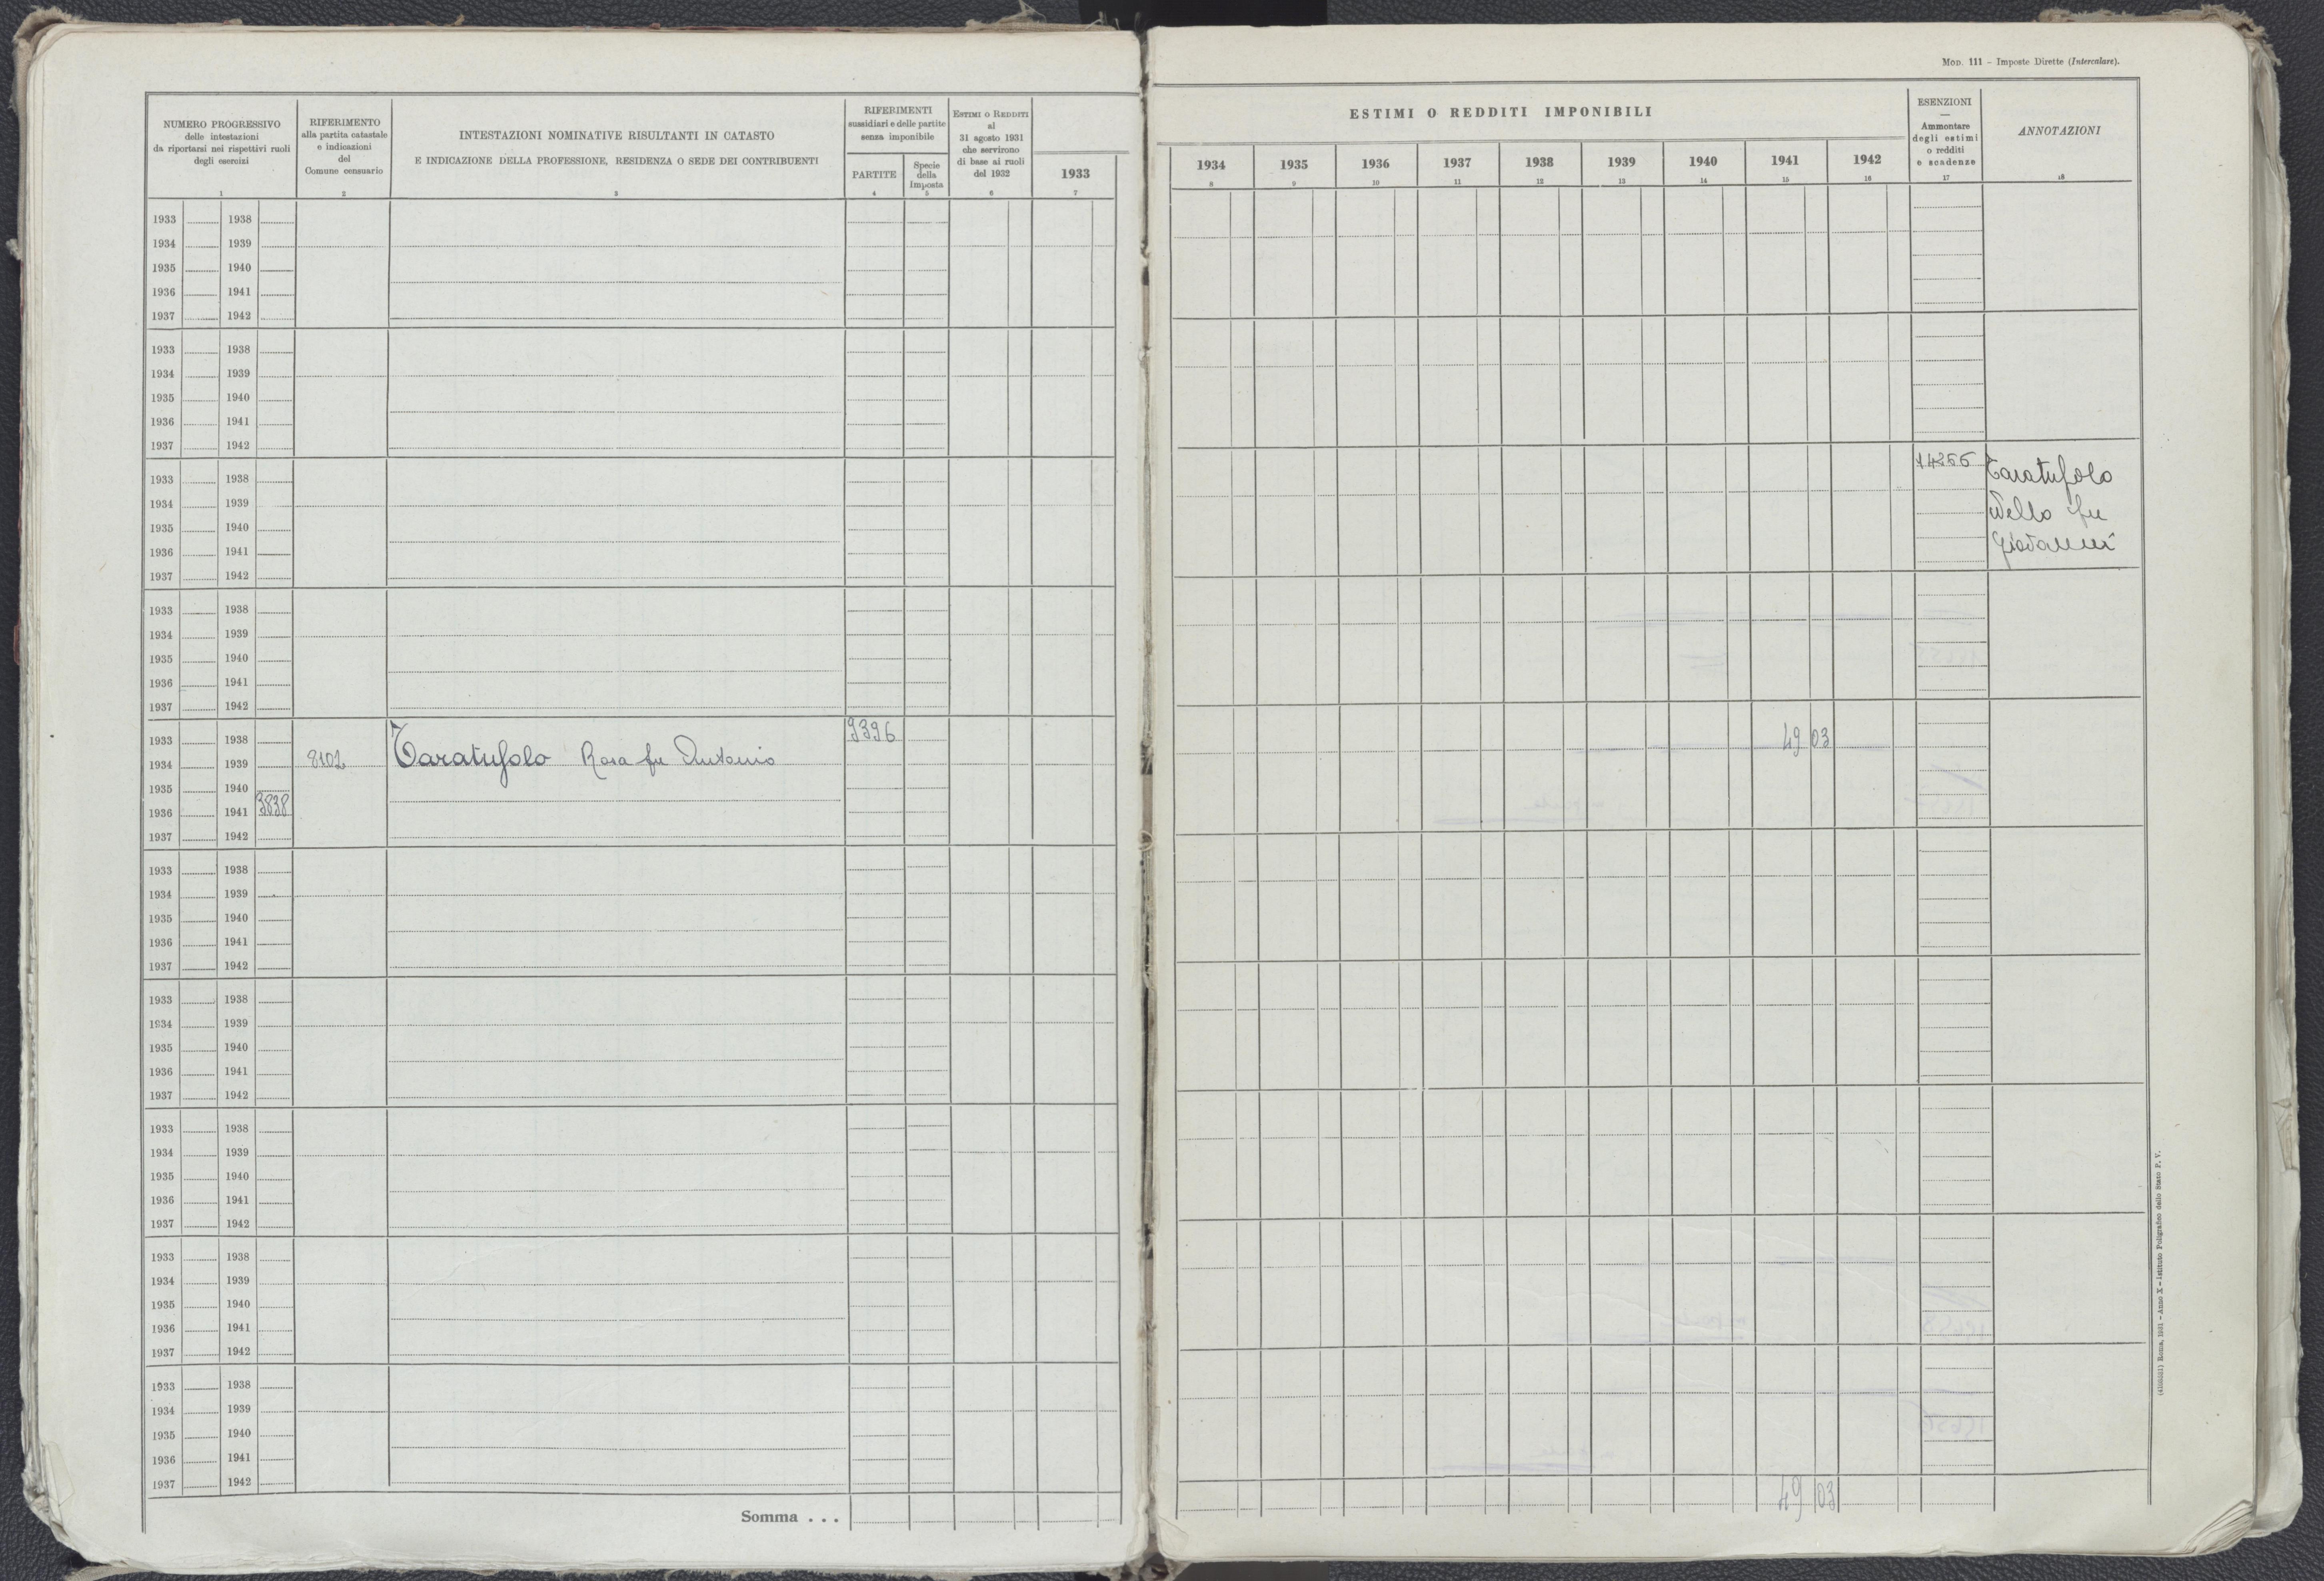 Mod. 111 - Imposte Dirette (Intercalare).
NUMERO PROGRESSIVO
delle intestazioni
da riportarsi nei rispettivi ruoli
degli esercizi
1
RIFERIMENTO
alla partita catastale
e indicazioni
del
Comune censuario
2
INTESTAZIONI NOMINATIVE RISULTANTI IN CATASTO
E INDICAZIONE DELLA PROFESSIONE, RESIDENZA O SEDE DEI CONTRIBUENTI
3
RIFERIMENTI
sussidiari e delle partite
senza imponibile
PARTITE
4
Specie
della
Imposta
5
ESTIMI O REDDITI
al
31 agosto 1931
che servirono
di base ai ruoli
del 1932
6
1933
7
ESTIMI O REDDITI IMPONIBILI
1934 1935 1936 1937 1938 1939 1940 1941 1942
8 9 10 11 12 13 14 15 16
ESENZIONI
—
Ammontare
degli estimi
o redditi
e scadenze
17
ANNOTAZIONI
18
1933 1938
1934 1939
1935 1940
1936 1941
1937 1942
1933 1938
1934 1939
1935 1940
1936 1941
1937 1942
14266 Taratufolo
1933 1938
Vello fu
1934 1939
Giovanni
1935 1940
1936 1941
1937 1942
1933 1938
1934 1939
1935 1940
1936 1941
1937 1942
9396
1933 1938 49 03
1934 1939 8102 Taratufolo Rosa fu Antonio
1935 1940
1936 1941 3838
1937 1942
1933 1938
1934 1939
1935 1940
1936 1941
1937 1942
1933 1938
1934 1939
1935 1940
1936 1941
1937 1942
1933 1938
1934 1939
1935 1940
1936 1941
1937 1942
1933 1938
1934 1939
1935 1940
1936 1941
1937 1942
1933 1938
1934 1939
1935 1940
1936 1941
1937 1942
Somma . . . 49 03
Roma, 1931 - Anno X - Istituto Poligrafico dello Stato P. V.